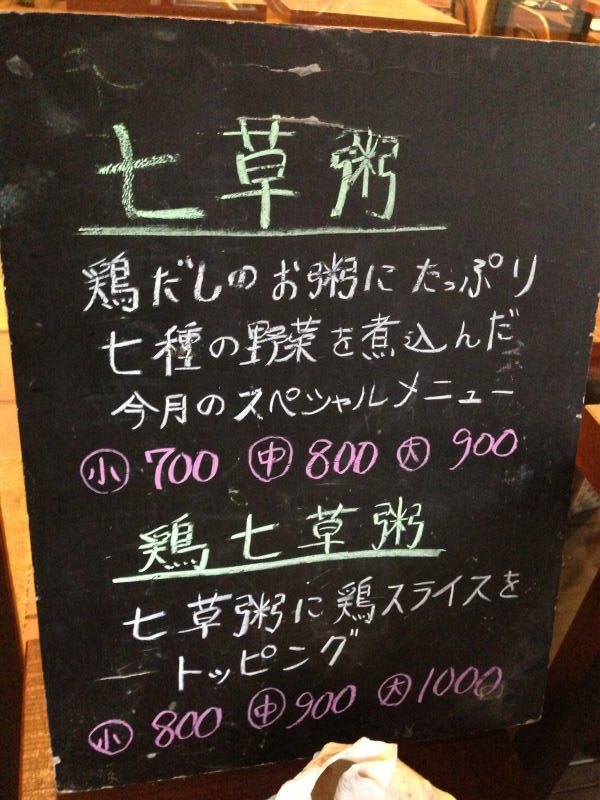 七草粥
鶏だしのお粥にたっぷり
七種の野菜を煮込んだ
今月のスペシャルメニュー
小 700 中 800 大 900
鶏七草粥
七草粥に鶏スライスを
トッピング
小 800 中 900 大 1000